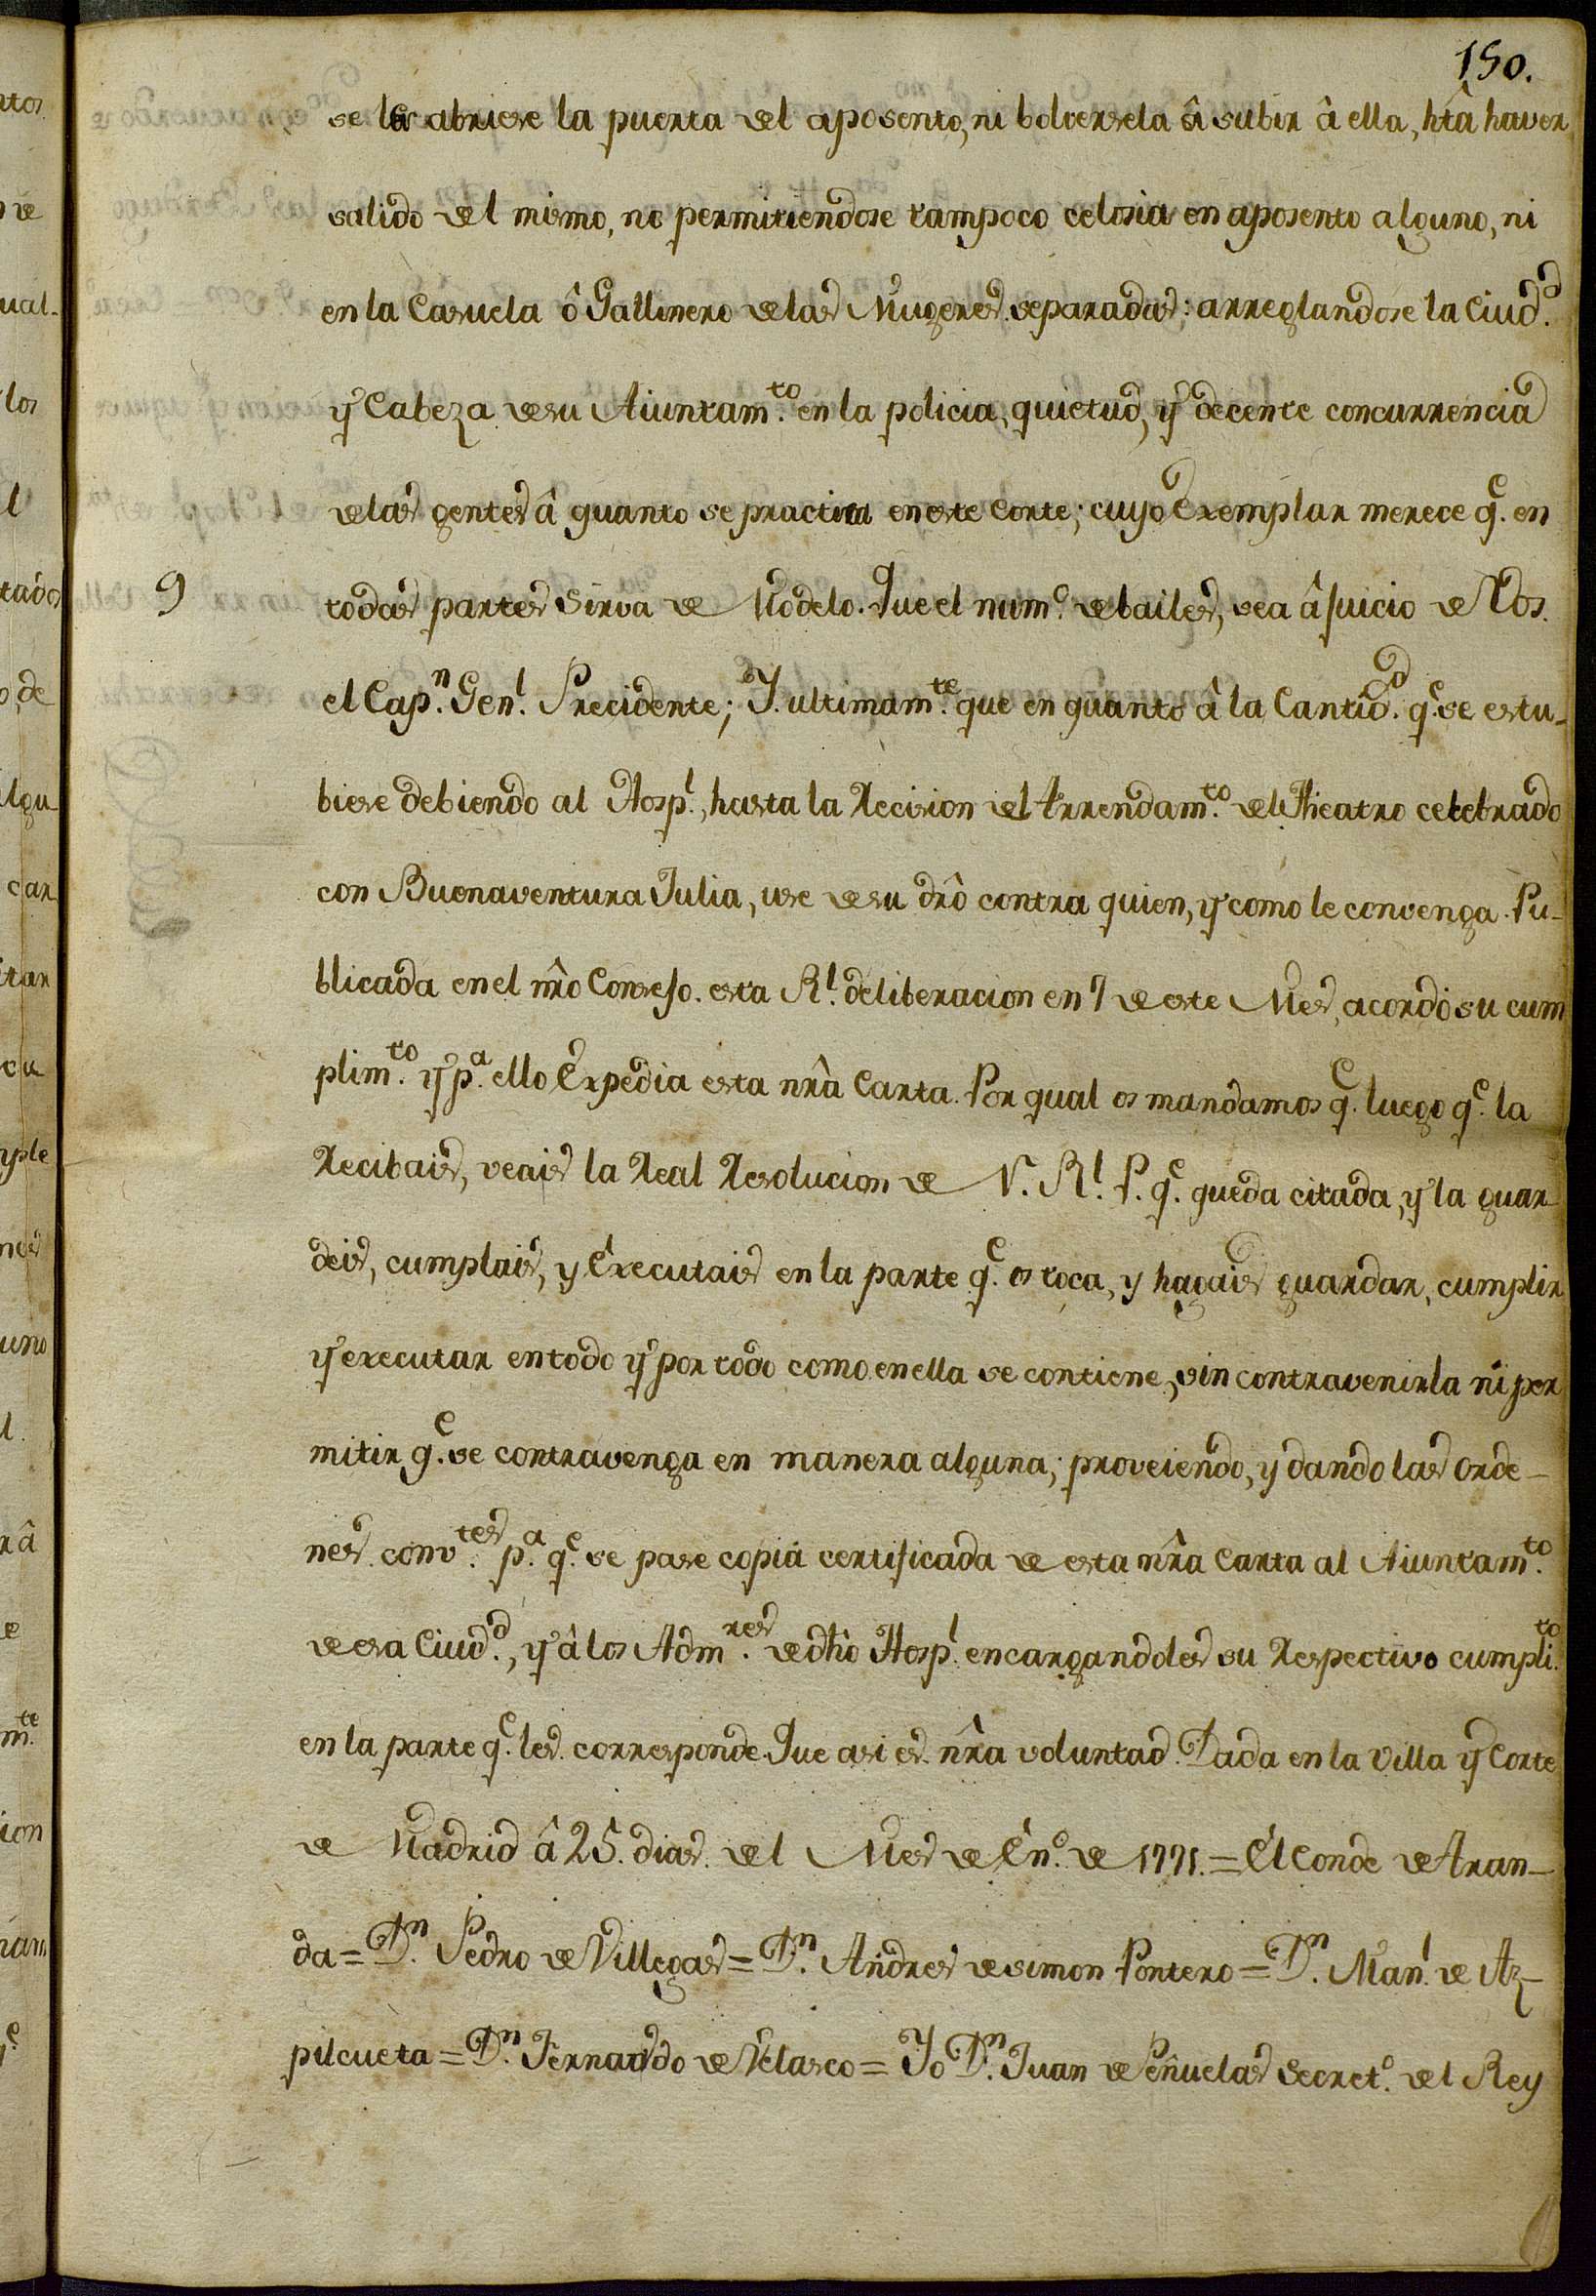 150.
se les abriese la puerta del aposento, ni bolversela â subir â ella, htâ haver
salido del mismo, no permitiendose tampoco celosia en aposento alguno, ni
en la Casuela ô Gallinero de las Mugeres separadas: arreglandose la Ciud.d
y Cabeza de su Aiuntam.to en la policia, quietud, y decente concurrencia
de las gentes â quanto se practica en este Corte; cuyo Exemplar merece q.e en
9 todas partes sirva de Modelo. Que el num.o de bailes, sea â Juicio de Vos.
el Cap.n Gen.l Precidente; Y ultimam.te que en quanto â la Cantid.d q.e se estu-
biese debiendo al Hosp.l, hasta la Recision del Arrendam.to del Theatro celebrado
con Buenaventura Julia, use de su drô contra quien, y como le convenga. Pu-
blicada en el nrô Consejo. esta R.l deliberacion en 7 de este Mes, acordò su cum
plim.to y p.a ello Expedia esta nrâ Carta. Por qual os mandamos q.e luego q.e la
Recibais, veais la Real Resolucion de N. R.l P. q.e queda citada, y la guar
deis, cumplais, y Executais en la parte q.e os toca, y hagais guardar, cumplir
y executar en todo y por todo como en ella se contiene, sin contravenirla ni per
mitir q.e se contravenga en manera alguna; proveiendo, y dando las orde-
nes conv.tes p.a q.e se pase copia certificada de esta nrâ Carta al Aiuntam.to
de esa Ciud.d, y â los Adm.res de dhô Hosp.l encargandoles su Respectivo cumpli.to
en la parte q.e les corresponde. Que asi es nrâ voluntad. Dada en la Villa y Corte
de Madrid â 25. dias del Mes de En.o de 1771. = El Conde de Aran-
da = D.n Pedro de Villegas = D.n Andres de simon Pontero = D.n Man.l de Az-
pilcueta = D.n Fernando de Velasco = Yo D.n Juan de Peñuelas Secret.o del Rey